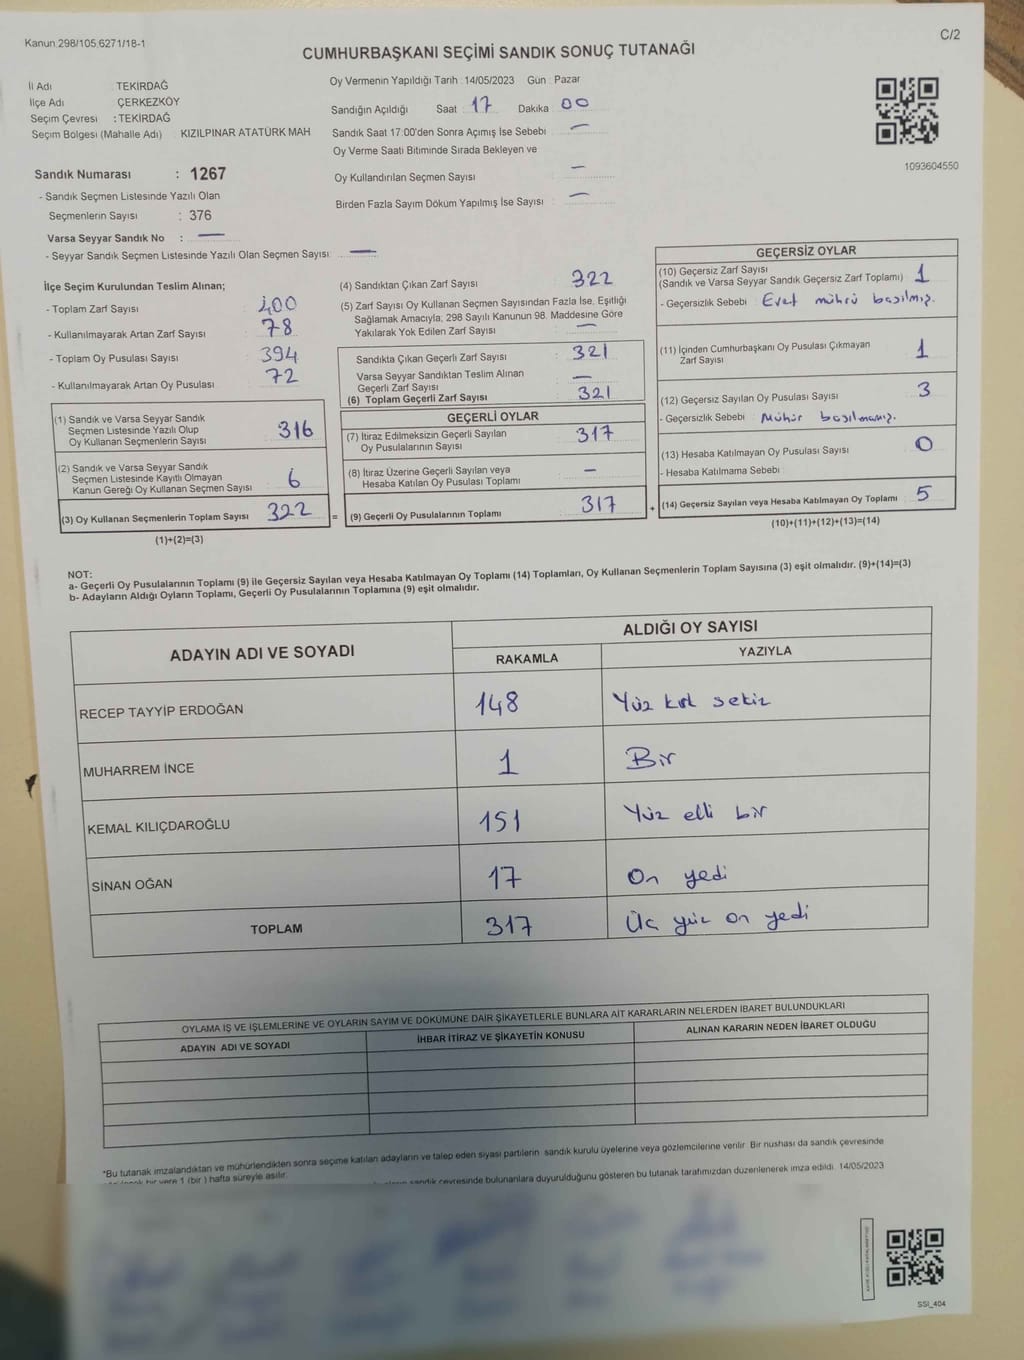 Kanun:298/105,6271/18-1
C/2
CUMHURBAŞKANI SEÇİMİ SANDIK SONUÇ TUTANAĞI
İl Adı : TEKİRDAĞ
İlçe Adı : ÇERKEZKÖY
Seçim Çevresi : TEKİRDAĞ
Seçim Bölgesi (Mahalle Adı) : KIZILPINAR ATATÜRK MAH
Sandık Numarası : 1267
- Sandık Seçmen Listesinde Yazılı Olan
Seçmenlerin Sayısı : 376
Varsa Seyyar Sandık No : —
- Seyyar Sandık Seçmen Listesinde Yazılı Olan Seçmen Sayısı: —
Oy Vermenin Yapıldığı Tarih : 14/05/2023 Gün : Pazar
Sandığın Açıldığı Saat : 17 Dakika : 00
Sandık Saat 17:00'den Sonra Açımış İse Sebebi : —
Oy Verme Saati Bitiminde Sırada Bekleyen ve
Oy Kullandırılan Seçmen Sayısı : —
Birden Fazla Sayım Döküm Yapılmış İse Sayısı : —
1093604550
İlçe Seçim Kurulundan Teslim Alınan;
- Toplam Zarf Sayısı : 400
- Kullanılmayarak Artan Zarf Sayısı : 78
- Toplam Oy Pusulası Sayısı : 394
- Kullanılmayarak Artan Oy Pusulası : 72
(1) Sandık ve Varsa Seyyar Sandık
Seçmen Listesinde Yazılı Olup
Oy Kullanan Seçmenlerin Sayısı : 316
(2) Sandık ve Varsa Seyyar Sandık
Seçmen Listesinde Kayıtlı Olmayan
Kanun Gereği Oy Kullanan Seçmen Sayısı : 6
(3) Oy Kullanan Seçmenlerin Toplam Sayısı : 322
(1)+(2)=(3)
(4) Sandıktan Çıkan Zarf Sayısı : 322
(5) Zarf Sayısı Oy Kullanan Seçmen Sayısından Fazla İse, Eşitliği
Sağlamak Amacıyla; 298 Sayılı Kanunun 98. Maddesine Göre
Yakılarak Yok Edilen Zarf Sayısı : —
Sandıkta Çıkan Geçerli Zarf Sayısı : 321
Varsa Seyyar Sandıktan Teslim Alınan
Geçerli Zarf Sayısı : —
(6) Toplam Geçerli Zarf Sayısı : 321
GEÇERLİ OYLAR
(7) İtiraz Edilmeksizin Geçerli Sayılan
Oy Pusulalarının Sayısı : 317
(8) İtiraz Üzerine Geçerli Sayılan veya
Hesaba Katılan Oy Pusulası Toplamı : —
= (9) Geçerli Oy Pusulalarının Toplamı : 317 +
GEÇERSİZ OYLAR
(10) Geçersiz Zarf Sayısı
(Sandık ve Varsa Seyyar Sandık Geçersiz Zarf Toplamı) : 1
- Geçersizlik Sebebi : Evet mührü basılmış.
(11) İçinden Cumhurbaşkanı Oy Pusulası Çıkmayan
Zarf Sayısı : 1
(12) Geçersiz Sayılan Oy Pusulası Sayısı : 3
- Geçersizlik Sebebi : Mühür basılmamış.
(13) Hesaba Katılmayan Oy Pusulası Sayısı : 0
- Hesaba Katılmama Sebebi :
(14) Geçersiz Sayılan veya Hesaba Katılmayan Oy Toplamı : 5
(10)+(11)+(12)+(13)=(14)
NOT:
a- Geçerli Oy Pusulalarının Toplamı (9) ile Geçersiz Sayılan veya Hesaba Katılmayan Oy Toplamı (14) Toplamları, Oy Kullanan Seçmenlerin Toplam Sayısına (3) eşit olmalıdır. (9)+(14)=(3)
b- Adayların Aldığı Oyların Toplamı, Geçerli Oy Pusulalarının Toplamına (9) eşit olmalıdır.
ADAYIN ADI VE SOYADI
ALDIĞI OY SAYISI
RAKAMLA YAZIYLA
RECEP TAYYİP ERDOĞAN 148 Yüz kırk sekiz
MUHARREM İNCE 1 Bir
KEMAL KILIÇDAROĞLU 151 Yüz elli bir
SİNAN OĞAN 17 On yedi
TOPLAM 317 Üç yüz on yedi
OYLAMA İŞ VE İŞLEMLERİNE VE OYLARIN SAYIM VE DÖKÜMÜNE DAİR ŞİKAYETLERLE BUNLARA AİT KARARLARIN NELERDEN İBARET BULUNDUKLARI
ADAYIN ADI VE SOYADI İHBAR İTİRAZ VE ŞİKAYETİN KONUSU ALINAN KARARIN NEDEN İBARET OLDUĞU
*Bu tutanak imzalandıktan ve mühürlendikten sonra seçime katılan adayların ve talep eden siyasi partilerin sandık kurulu üyelerine veya gözlemcilerine verilir. Bir nüshası da sandık çevresinde
bir yere 1 (bir) hafta süreyle asılır.
sandık çevresinde bulunanlara duyurulduğunu gösteren bu tutanak tarafımızdan düzenlenerek imza edildi. 14/05/2023
SSİ_404